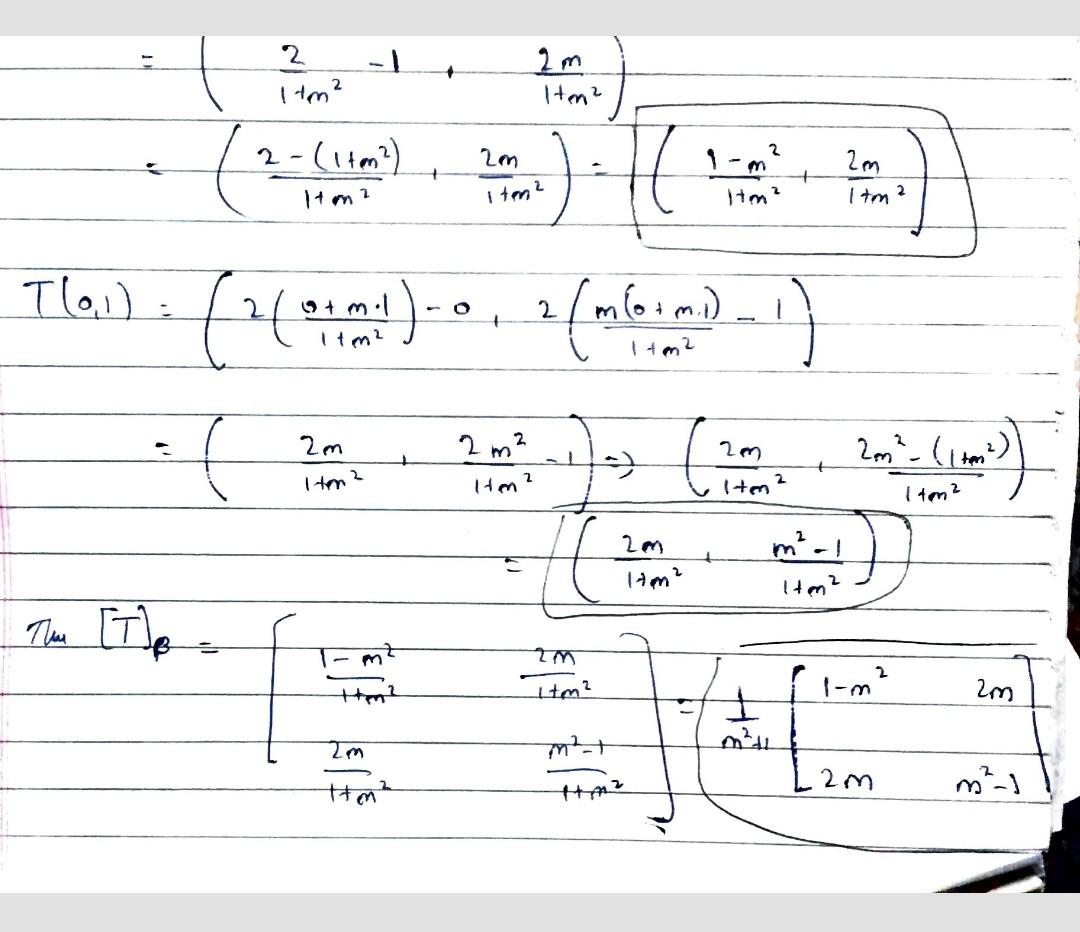 = ( 2/(1+m²) - 1 , 2m/(1+m²) )
= ( (2 - (1+m²))/(1+m²) , 2m/(1+m²) ) = ( (1-m²)/(1+m²) , 2m/(1+m²) )
T(0,1) = ( 2( (0+m·1)/(1+m²) ) - 0 , 2( m(0+m.1)/(1+m²) - 1 )
= ( 2m/(1+m²) , 2m²/(1+m²) - 1 ) => ( 2m/(1+m²) , (2m² - (1+m²))/(1+m²) )
= ( 2m/(1+m²) , (m²-1)/(1+m²) )
[T]β = [ (1-m²)/(1+m²) 2m/(1+m²) ] = 1/(m²+1) [ 1-m² 2m ]
[ 2m/(1+m²) (m²-1)/(1+m²) ] [ 2m m²-1 ]